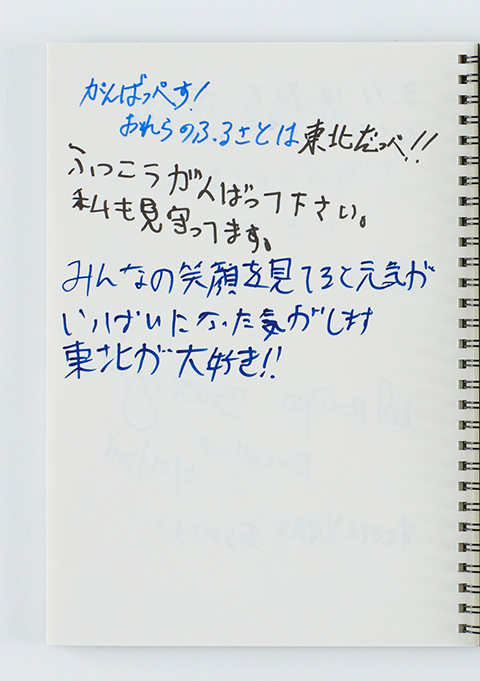 がんばっぺす!
おれらのふるさとは東北だっべ!!
ふっこうがんばって下さい。
私も見守ってます。
みんなの笑顔を見てると元気が
いっぱいになった気がします
東北が大好き!!